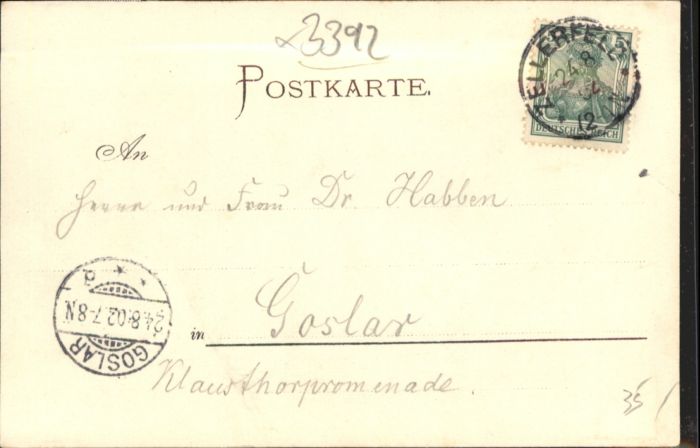 3392
POSTKARTE.
ZELLERFELD
24.8
DEUTSCHES REICH
An
Herrn und Frau Dr. Habben
24.8.02.7-8N.
GOSLAR
in Goslar
Klausthorpromenade.
35